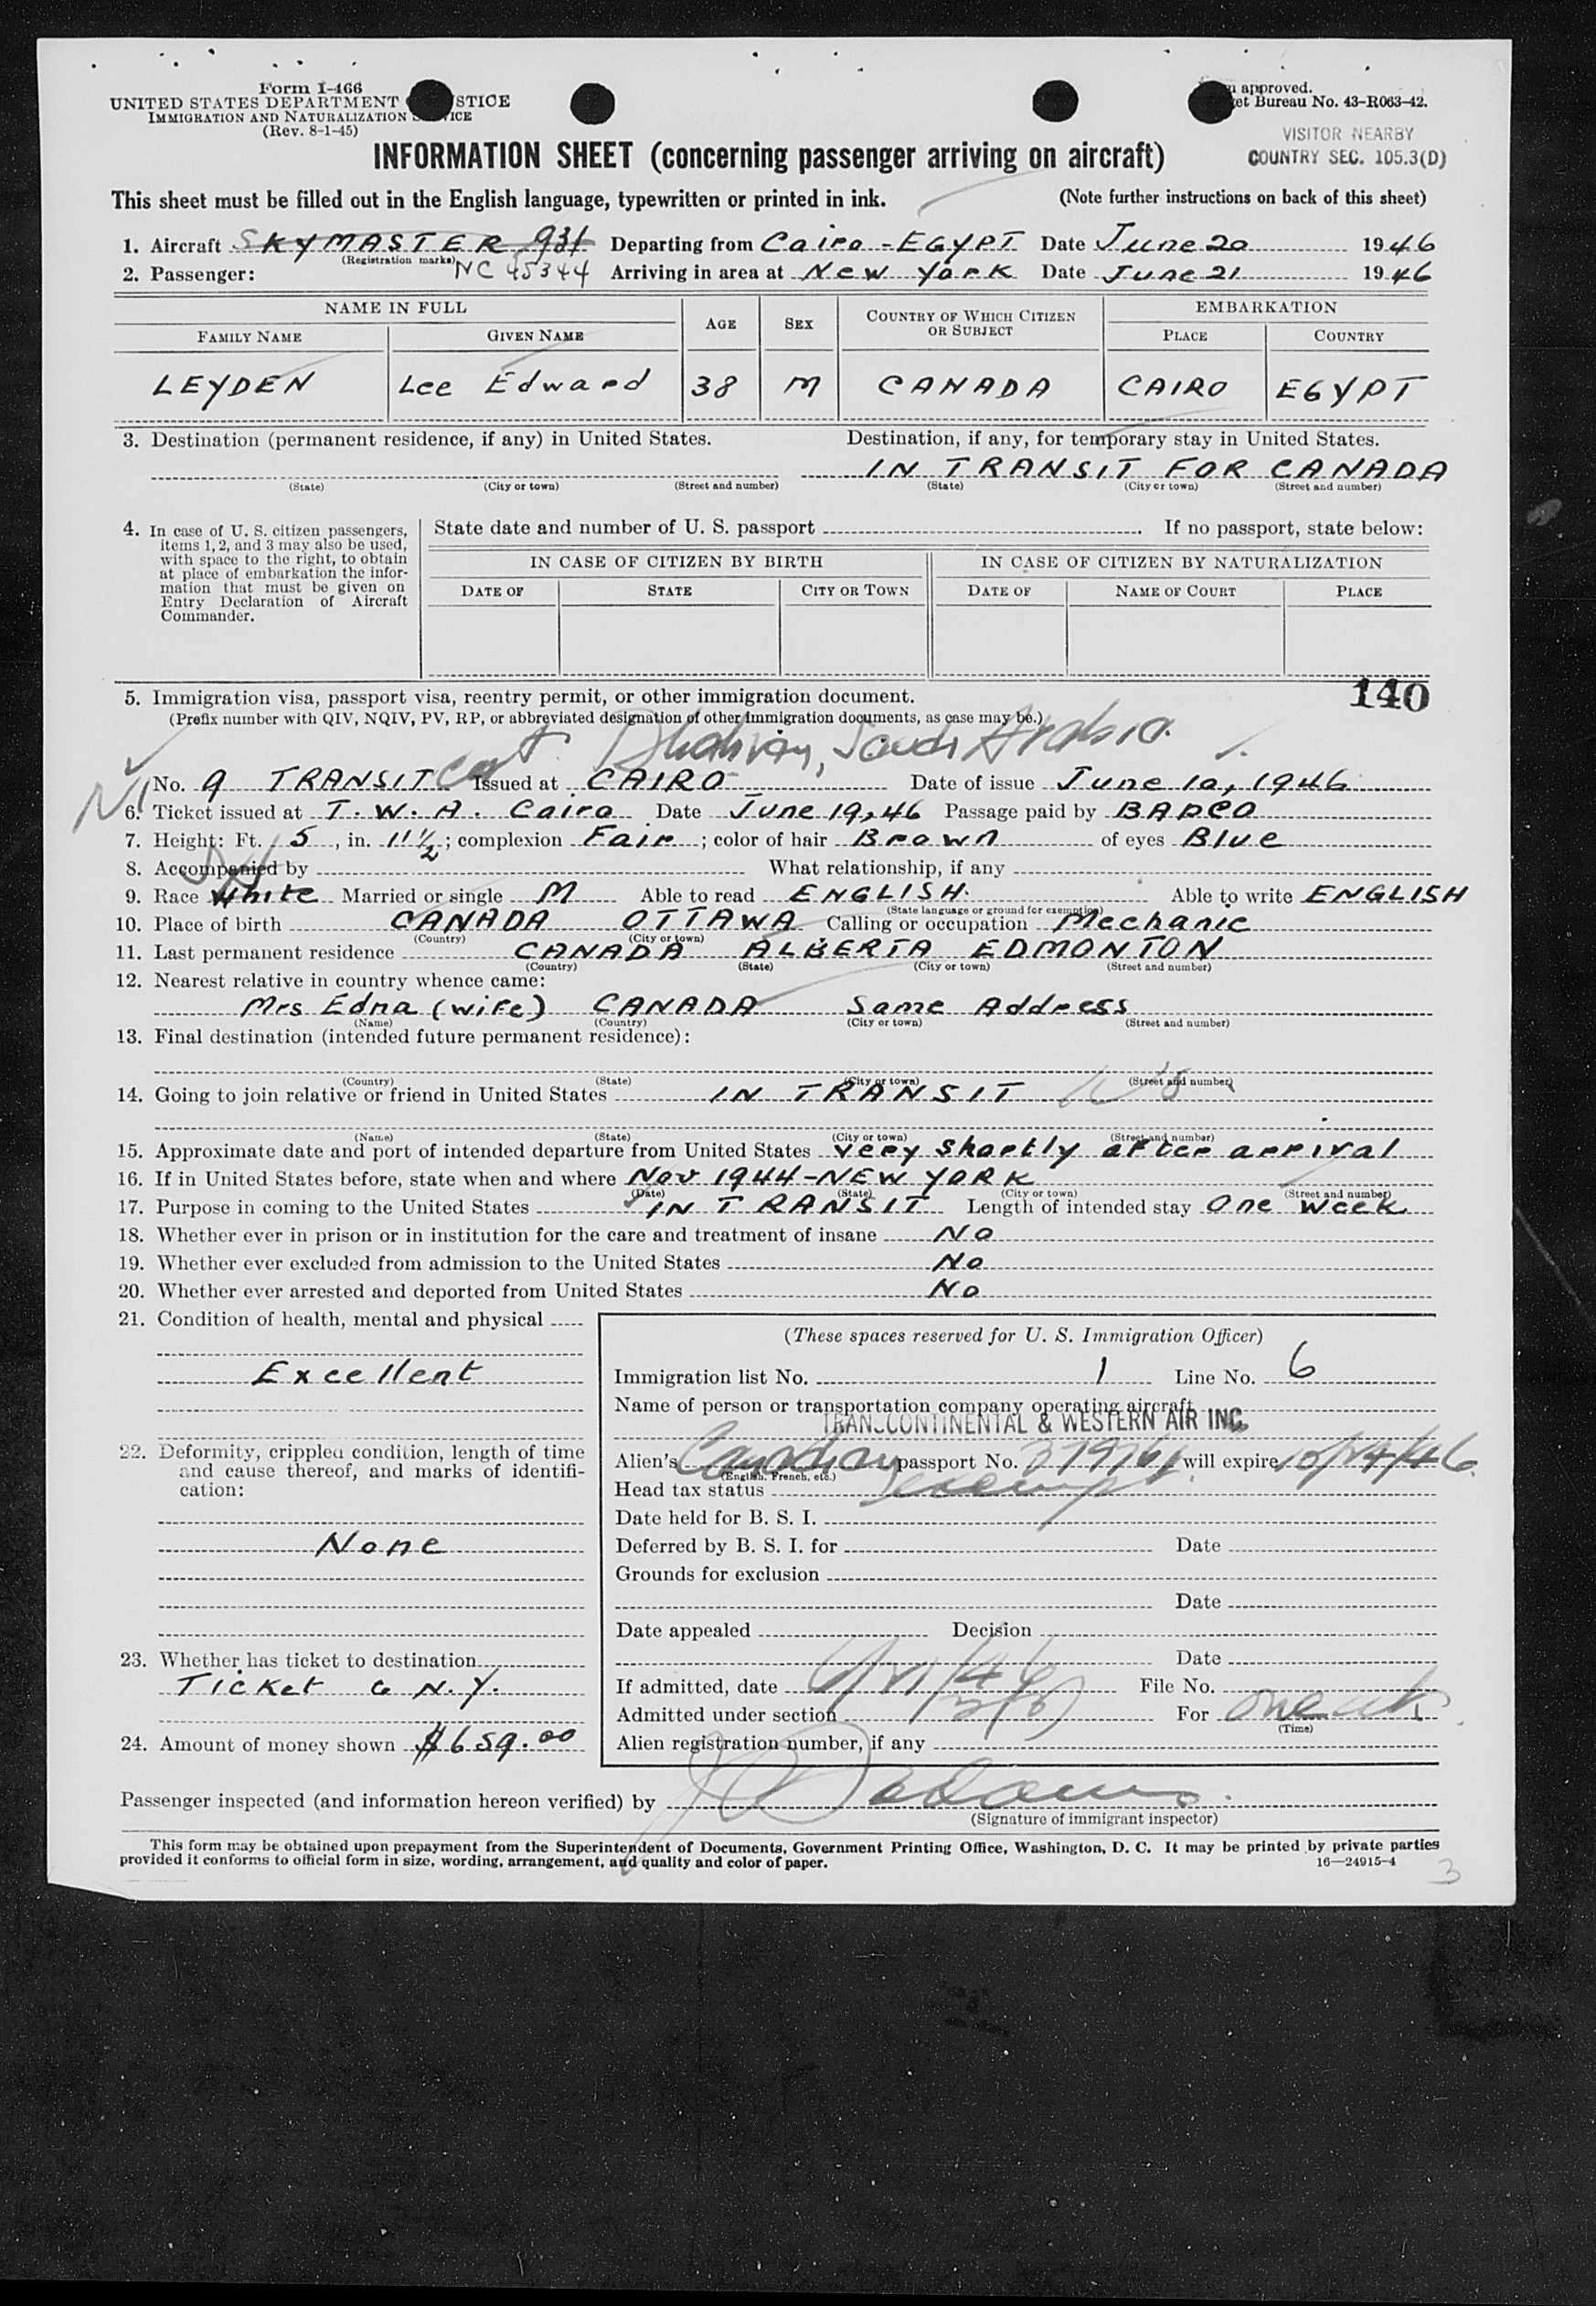 Form I-466
UNITED STATES DEPARTMENT STICE
IMMIGRATION AND NATURALIZATION ICE
(Rev. 8-1-45)
approved.
et Bureau No. 43-R063-42.
VISITOR NEARBY
COUNTRY SEC. 105.3(D)
INFORMATION SHEET (concerning passenger arriving on aircraft)
This sheet must be filled out in the English language, typewritten or printed in ink. (Note further instructions on back of this sheet)
1. Aircraft SKYMASTER 931 Departing from Cairo - EGYPT Date June 20 1946
(Registration marks)
2. Passenger: NC 45344 Arriving in area at New York Date June 21 1946
NAME IN FULL AGE SEX COUNTRY OF WHICH CITIZEN OR SUBJECT EMBARKATION
FAMILY NAME GIVEN NAME PLACE COUNTRY
LEYDEN Lee Edward 38 M CANADA CAIRO EGYPT
3. Destination (permanent residence, if any) in United States. Destination, if any, for temporary stay in United States.
IN TRANSIT FOR CANADA
(State) (City or town) (Street and number) (State) (City or town) (Street and number)
4. In case of U. S. citizen passengers, items 1, 2, and 3 may also be used, with space to the right, to obtain at place of embarkation the information that must be given on Entry Declaration of Aircraft Commander.
State date and number of U. S. passport If no passport, state below:
IN CASE OF CITIZEN BY BIRTH IN CASE OF CITIZEN BY NATURALIZATION
DATE OF STATE CITY OR TOWN DATE OF NAME OF COURT PLACE
140
5. Immigration visa, passport visa, reentry permit, or other immigration document.
(Prefix number with QIV, NQIV, PV, RP, or abbreviated designation of other immigration documents, as case may be.)
Dhahran, Saudi Arabia
No. 9 TRANSIT cert Issued at CAIRO Date of issue June 10, 1946
6. Ticket issued at T. W. A. Cairo Date June 19, 46 Passage paid by BAPCO
7. Height: Ft. 5, in. 11 1/2; complexion Fair; color of hair Brown of eyes Blue
8. Accompanied by What relationship, if any
9. Race White Married or single M Able to read ENGLISH Able to write ENGLISH
(State language or ground for exemption)
10. Place of birth CANADA OTTAWA Calling or occupation Mechanic
(Country) (City or town)
11. Last permanent residence CANADA ALBERTA EDMONTON
(Country) (State) (City or town) (Street and number)
12. Nearest relative in country whence came:
Mrs Edna (wife) CANADA Same Address
(Name) (Country) (City or town) (Street and number)
13. Final destination (intended future permanent residence):
(Country) (State) (City or town) (Street and number)
14. Going to join relative or friend in United States IN TRANSIT
(Name) (State) (City or town) (Street and number)
15. Approximate date and port of intended departure from United States very shortly after arrival
16. If in United States before, state when and where Nov 1944 - NEW YORK
(Date) (State) (City or town) (Street and number)
17. Purpose in coming to the United States IN TRANSIT Length of intended stay One week
18. Whether ever in prison or in institution for the care and treatment of insane No
19. Whether ever excluded from admission to the United States No
20. Whether ever arrested and deported from United States No
21. Condition of health, mental and physical
Excellent
22. Deformity, crippled condition, length of time and cause thereof, and marks of identification:
None
23. Whether has ticket to destination
Ticket to N.Y.
24. Amount of money shown $659.00
(These spaces reserved for U. S. Immigration Officer)
Immigration list No. 1 Line No. 6
Name of person or transportation company operating aircraft
TRANSCONTINENTAL & WESTERN AIR INC.
Alien's Canadian passport No. will expire 10/24/46
(English, French, etc.)
Head tax status exempt
Date held for B. S. I.
Deferred by B. S. I. for Date
Grounds for exclusion
Date
Date appealed Decision
Date
If admitted, date 6/21/46 File No.
Admitted under section 3(3) For one wk
(Time)
Alien registration number, if any
Passenger inspected (and information hereon verified) by
(Signature of immigrant inspector)
This form may be obtained upon prepayment from the Superintendent of Documents, Government Printing Office, Washington, D. C. It may be printed by private parties
provided it conforms to official form in size, wording, arrangement, and quality and color of paper. 16—24915-4
3